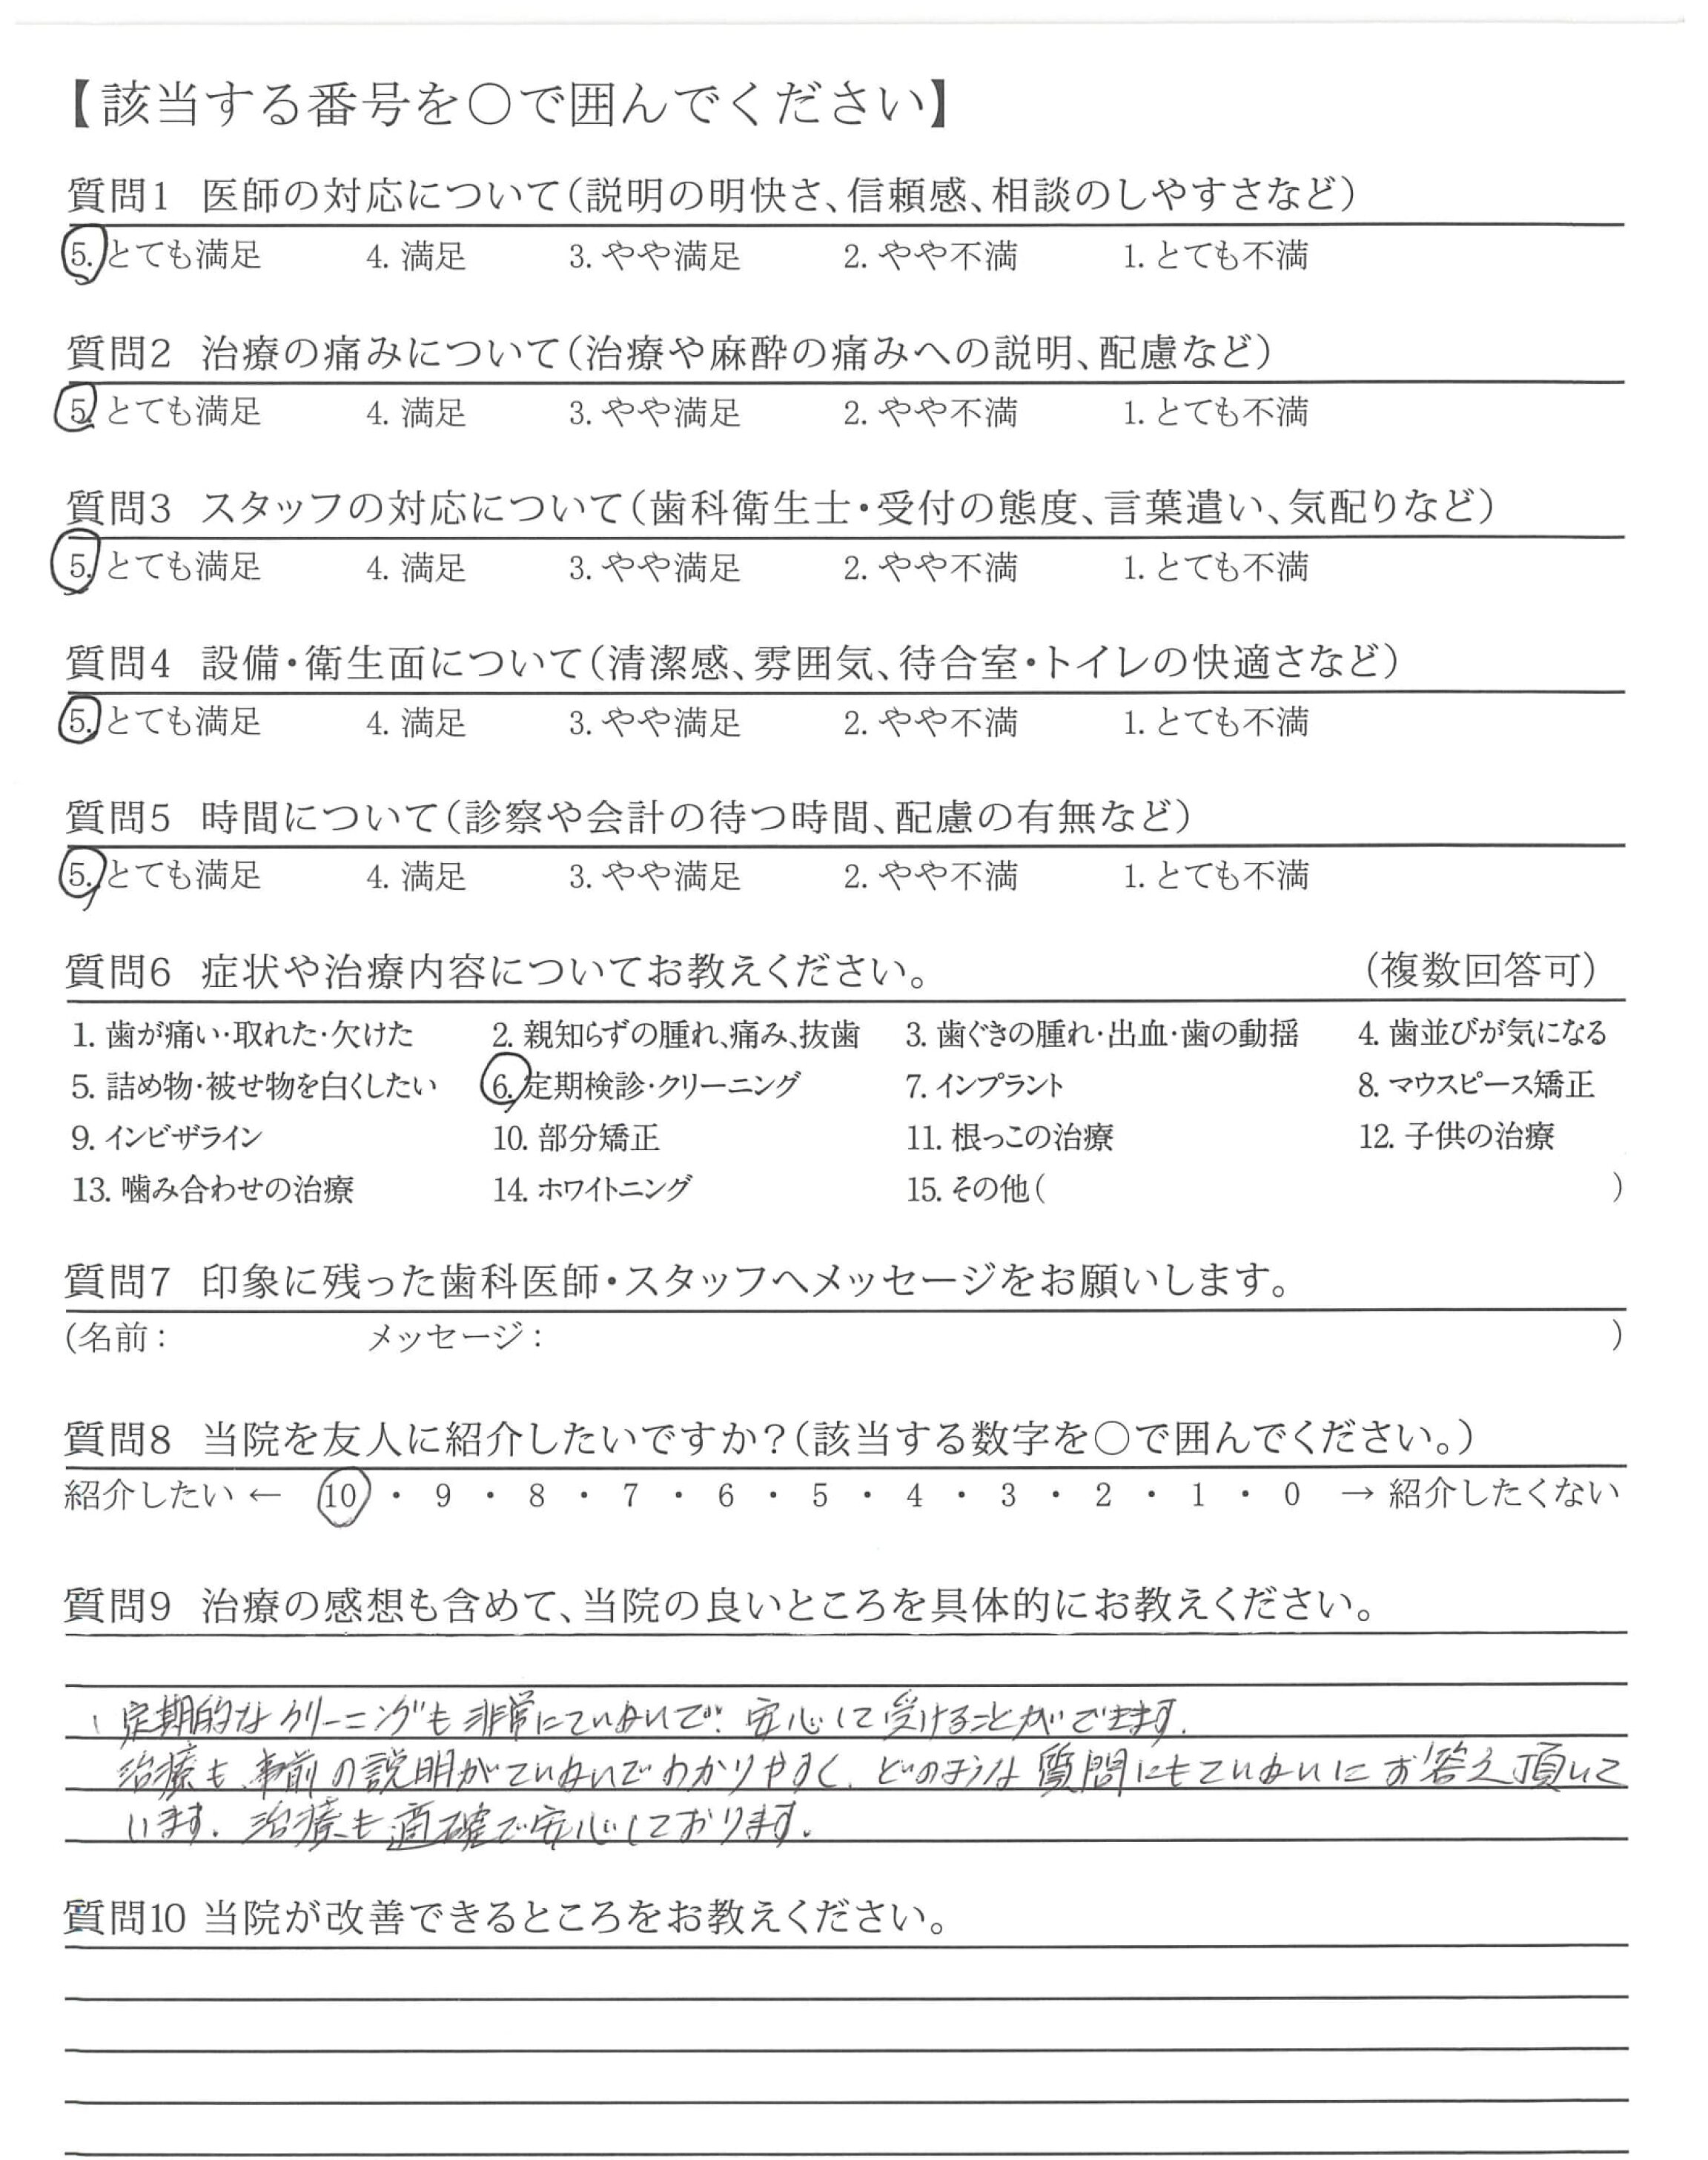 【該当する番号を〇で囲んでください】
質問1 医師の対応について（説明の明快さ、信頼感、相談のしやすさなど）
5. とても満足 4. 満足 3. やや満足 2. やや不満 1. とても不満
質問2 治療の痛みについて（治療や麻酔の痛みへの説明、配慮など）
5. とても満足 4. 満足 3. やや満足 2. やや不満 1. とても不満
質問3 スタッフの対応について（歯科衛生士・受付の態度、言葉遣い、気配りなど）
5. とても満足 4. 満足 3. やや満足 2. やや不満 1. とても不満
質問4 設備・衛生面について（清潔感、雰囲気、待合室・トイレの快適さなど）
5. とても満足 4. 満足 3. やや満足 2. やや不満 1. とても不満
質問5 時間について（診察や会計の待つ時間、配慮の有無など）
5. とても満足 4. 満足 3. やや満足 2. やや不満 1. とても不満
質問6 症状や治療内容についてお教えください。 （複数回答可）
1. 歯が痛い・取れた・欠けた 2. 親知らずの腫れ、痛み、抜歯 3. 歯ぐきの腫れ・出血・歯の動揺 4. 歯並びが気になる
5. 詰め物・被せ物を白くしたい 6. 定期検診・クリーニング 7. インプラント 8. マウスピース矯正
9. インビザライン 10. 部分矯正 11. 根っこの治療 12. 子供の治療
13. 噛み合わせの治療 14. ホワイトニング 15. その他（ ）
質問7 印象に残った歯科医師・スタッフへメッセージをお願いします。
（名前： メッセージ： ）
質問8 当院を友人に紹介したいですか？（該当する数字を〇で囲んでください。）
紹介したい ← 10 ・ 9 ・ 8 ・ 7 ・ 6 ・ 5 ・ 4 ・ 3 ・ 2 ・ 1 ・ 0 → 紹介したくない
質問9 治療の感想も含めて、当院の良いところを具体的にお教えください。
定期的なクリーニングも非常にていねいで、安心して受けることができます。
治療も、事前の説明がていねいでわかりやすく、どのような質問にもていねいにお答え頂いて
います。治療も適確で安心しております。
質問10 当院が改善できるところをお教えください。